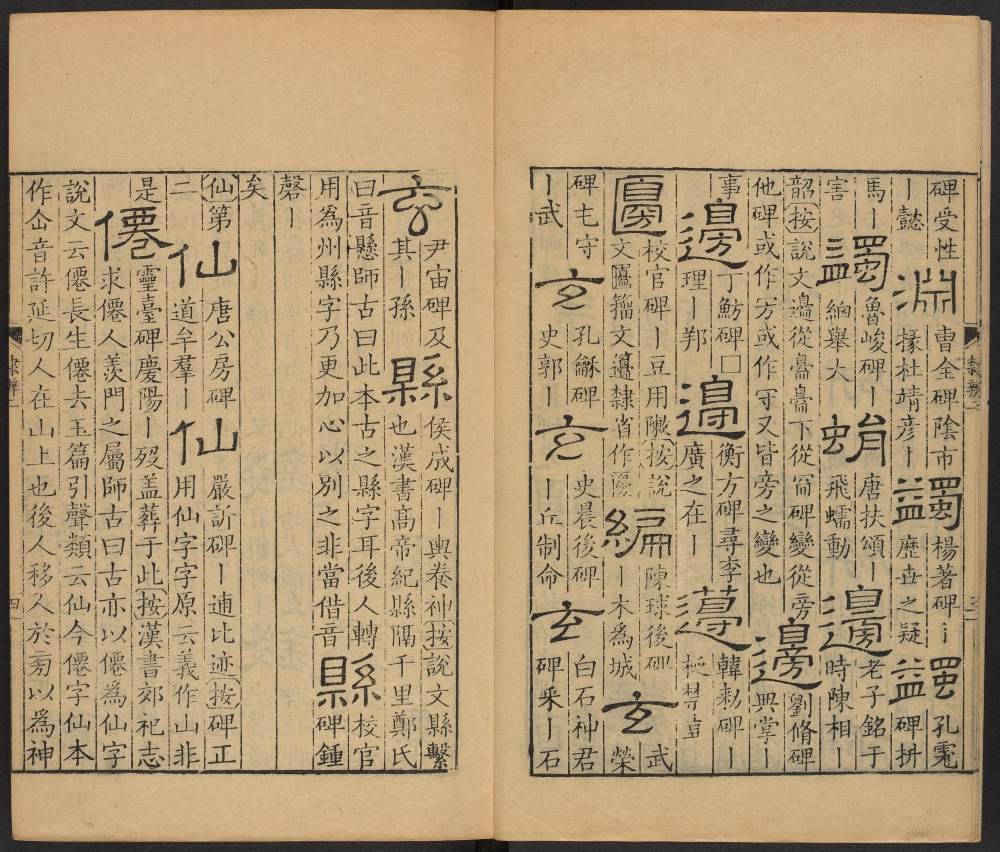 碑受性丨懿淵曹全碑陰市掾杜靖彦丨蠲楊著碑丨歷世之疑蠲孔彪碑拼
馬丨害蠲魯峻碑丨細舉大蜎唐扶頌丨飛蠕動邊老子銘于時陳相丨
韶按說文邊從臱臱下從㝑碑變從旁他碑或作㝑或作守又皆旁之變也邊劉脩碑典掌丨
事邊丁魴碑□理丨邦邊衡方碑尋李廣之在丨邊韓勑碑丨柉禁壺
籩校官碑丨豆用陳按說文籩籒文隸省作編陳球後碑丨木爲城玄武榮
碑屯守丨武玄孔龢碑史郭丨玄史晨後碑丨丘制命玄白石神君碑采丨石
玄尹宙碑及其丨孫縣侯成碑丨輿卷神按說文縣繫也漢書髙帝紀縣隔千里鄭氏
曰音懸師古曰此本古之縣字耳後人轉用爲州縣字乃更加心以別之非當借音縣校官碑鍾
磬丨
矣
仙第二仙唐公房碑道牟羣丨仙嚴訢碑丨逋比迹按碑正用仙字字原云義作山非
是僊靈臺碑慶陽丨歿盖葬于此按漢書郊祀志求僊人羨門之屬師古曰古亦以僊爲仙字
說文云僊長生僊去玉篇引聲類云仙今僊字仙本作仚音許延切人在山上也後人移人於旁以爲神
隸辨二
四